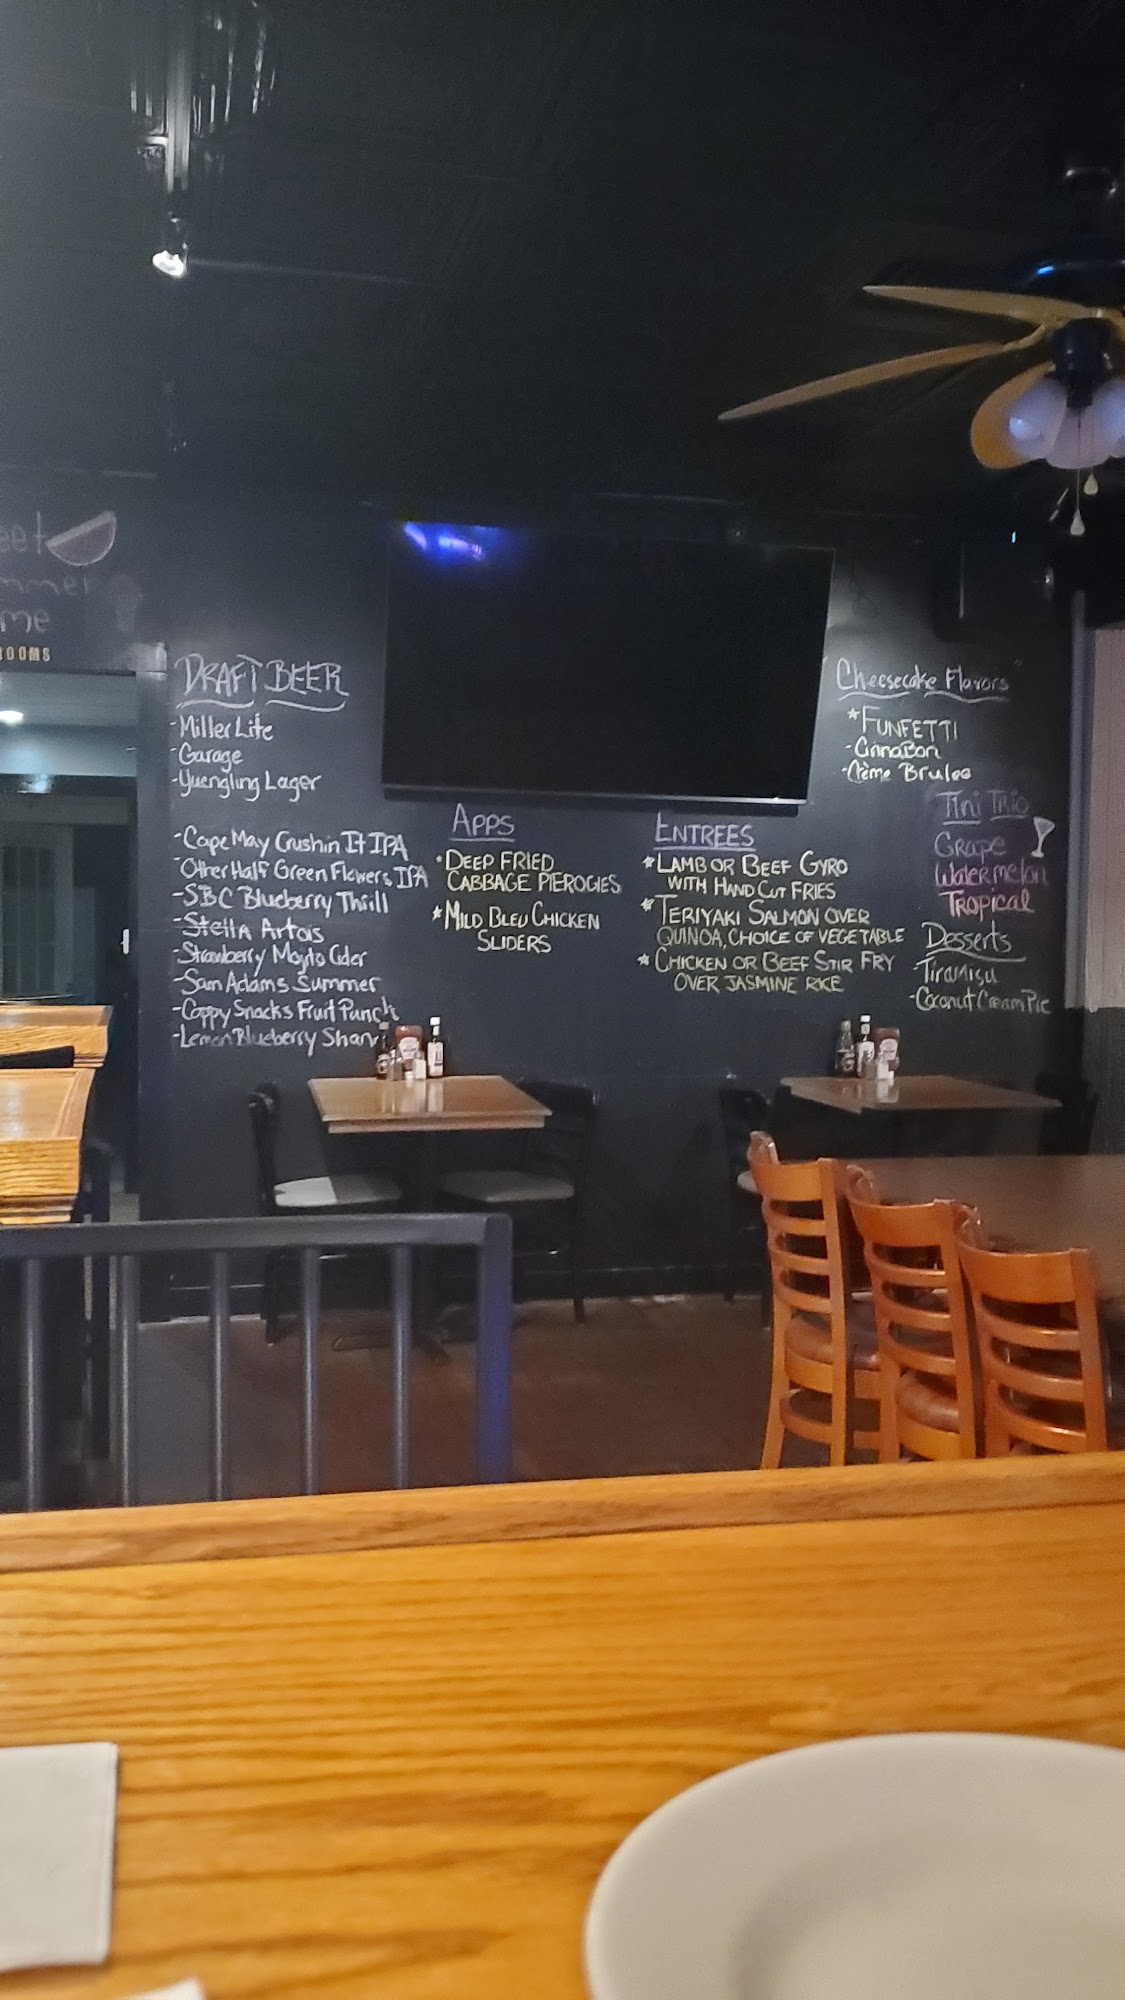 DRAFT BEER
-Miller Lite
-Garage
-Yuengling Lager
-Cape May Crushin It IPA
-Other Half Green Flowers IPA
-SBC Blueberry Thrill
-Stella Artois
-Strawberry Mojito Cider
-Sam Adams Summer
-Cappy Snacks Fruit Punch
-Lemon Blueberry
APPS
*DEEP FRIED
CABBAGE PIEROGIES
*MILD BLEU CHICKEN
SLIDERS
ENTREES
*LAMB OR BEEF GYRO
WITH HAND CUT FRIES
*TERIYAKI SALMON OVER
QUINOA, CHOICE OF VEGETABLE
*CHICKEN OR BEEF STIR FRY
OVER JASMINE RICE
Cheesecake Flavors
*FUNFETTI
-CinnaBon
-Crème Brulee
Tini Trio
Grape
Watermelon
Tropical
Desserts
-Tiramisu
-Coconut Cream Pie